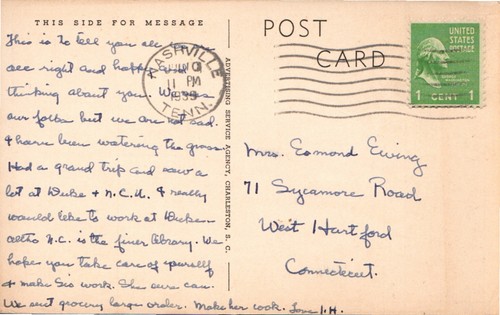 THIS SIDE FOR MESSAGE
This is to tell you all is
all right and happy &
thinking about you. We miss
our folks but we are not sad.
I have been watering the grass.
Had a grand trip and saw a
lot at Duke & N.C.U. & really
would like to work at Duke
altho N.C. is the finer library. We
hope you take care of yourself
& make Sis work. She sure can.
We sent grocery large order. Make her cook. Love I.H.
ADVERTISING SERVICE AGENCY, CHARLESTON, S. C.
NASHVILLE
11 PM
1939
TENN.
POST
CARD
UNITED
STATES
POSTAGE
1 CENT 1
Mrs. Edmond Ewing
71 Sycamore Road
West Hartford
Connecticut.